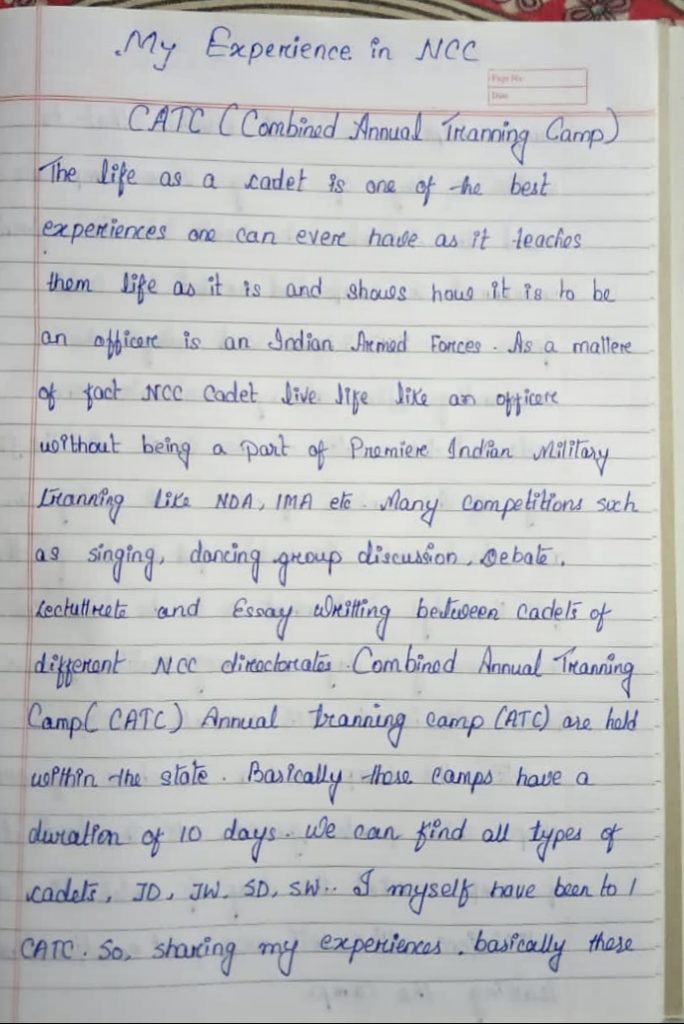 My Experience in NCC
Page No
Date
CATC (Combined Annual Tranning Camp)
The life as a cadet is one of the best
experiences one can evere have as it teaches
them life as it is and shows how it is to be
an officere is an Indian Armed Forces. As a mattere
of fact NCC Cadet live life like an officere
without being a part of Premiere Indian Military
tranning like NDA, IMA etc. Many competitions such
as singing, dancing group discussion, Debate,
and Essay writting between cadets of
different NCC directorates. Combined Annual Tranning
Camp( CATC) Annual tranning camp (ATC) are held
within the state. Basically these camps have a
duration of 10 days. We can find all types of
cadets, JD, JW, SD, SW.. I myself have been to 1
CATC. So, sharing my experiences. basically these